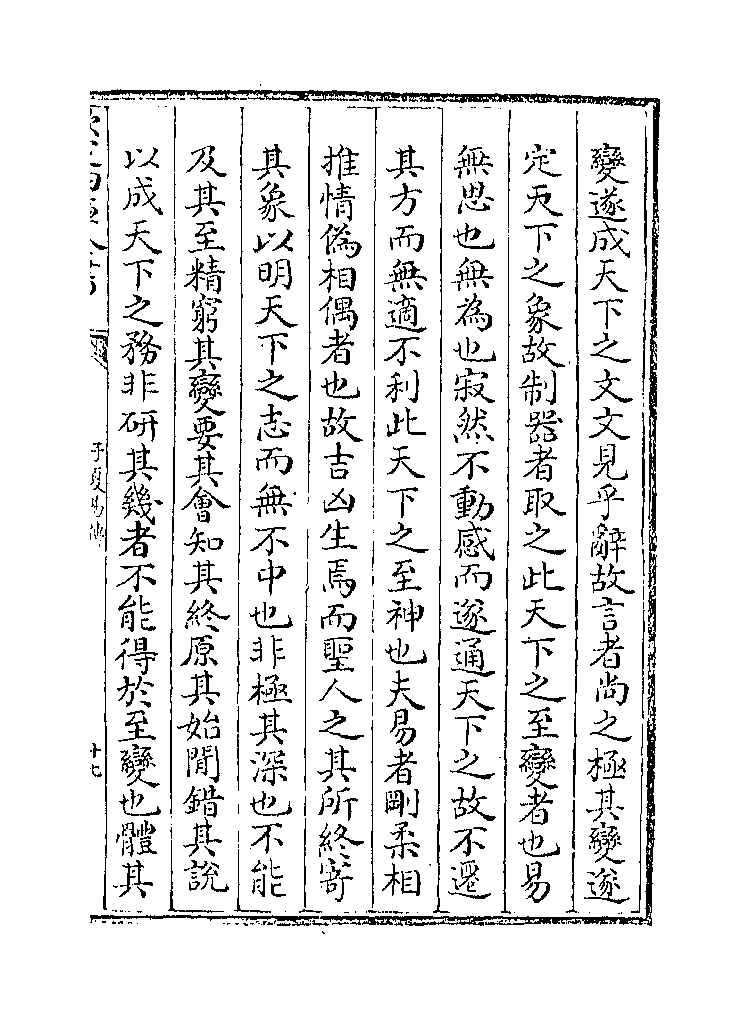 變遂成天下之文文見乎辭故言者尚之極其變遂
定天下之象故制器者取之此天下之至變者也易
無思也無為也寂然不動感而遂通天下之故不遷
其方而無適不利此天下之至神也夫易者剛柔相
推情偽相偶者也故吉凶生焉而聖人之其所終寄
其象以明天下之志而無不中也非極其深也不能
及其至精窮其變要其會知其終原其始閒錯其說
以成天下之務非研其幾者不能得於至變也體其
子夏易傳
十七